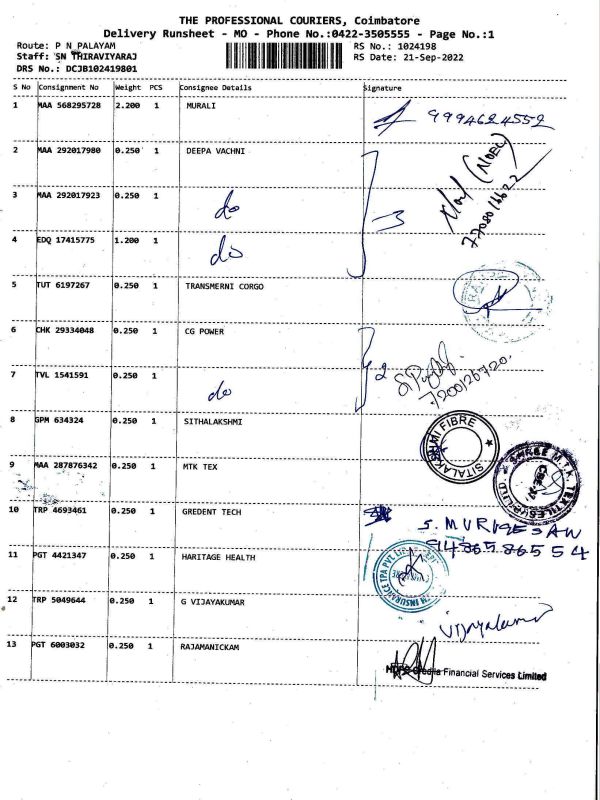 THE PROFESSIONAL COURIERS, Coimbatore
Delivery Runsheet - MO - Phone No.:0422-3505555 - Page No.:1
Route: P N PALAYAM RS No.: 1024198
Staff: SN THIRAVIYARAJ RS Date: 21-Sep-2022
DRS No.: DCJB102419801
S No Consignment No Weight PCS Consignee Details Signature
1 MAA 568295728 2.200 1 MURALI 9994624552
2 MAA 292017980 0.250 1 DEEPA VACHNI
3 MAA 292017923 0.250 1 do 3
4 EDQ 17415775 1.200 1 do
5 TUT 6197267 0.250 1 TRANSMERNI CORGO
6 CHK 29334048 0.250 1 CG POWER
7 TVL 1541591 0.250 1 do 2 7200126720
8 GPM 634324 0.250 1 SITHALAKSHMI SITALAKSHMI FIBRE
9 MAA 287876342 0.250 1 MTK TEX SHREE M.T.K. TEXTILES
10 TRP 4693461 0.250 1 GREDENT TECH S. MURUGESAN
9486586554
11 PGT 4421347 0.250 1 HARITAGE HEALTH INSURANCE TPA PVT
12 TRP 5049644 0.250 1 G VIJAYAKUMAR
13 PGT 6003032 0.250 1 RAJAMANICKAM
Financial Services Limited